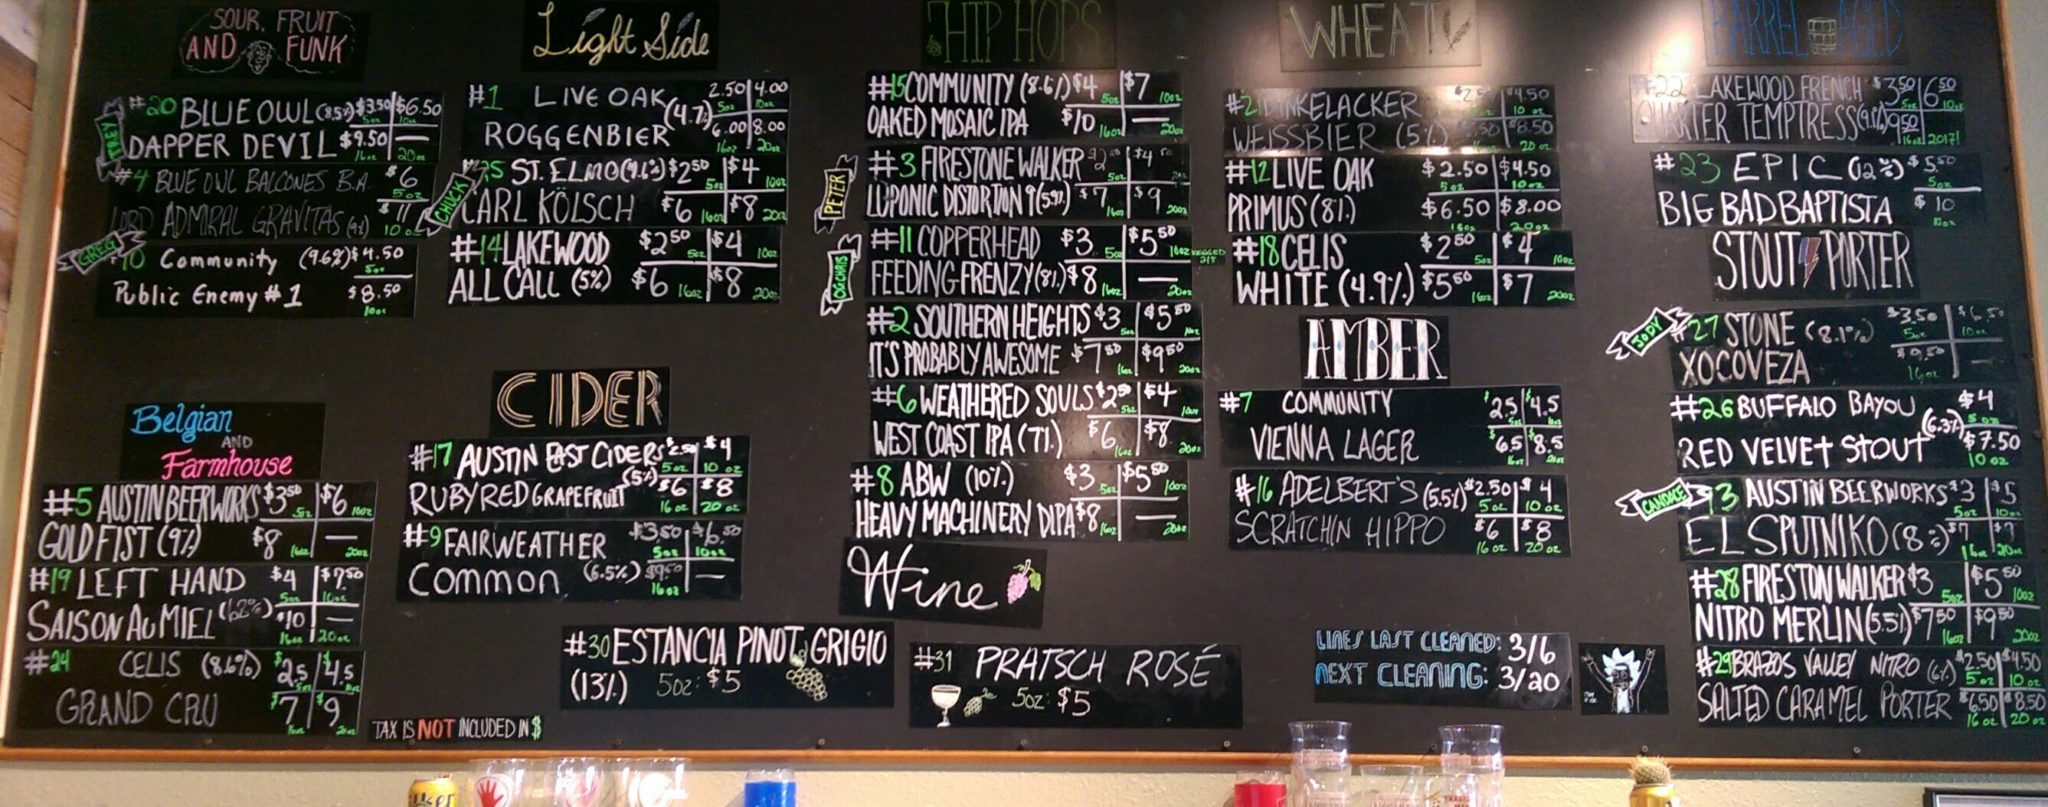 SOUR, FRUIT
AND FUNK
TREY
#20 BLUE OWL (8.5%) $3.50 5oz $6.50 10oz
DAPPER DEVIL $9.50 16oz — 20oz
#4 BLUE OWL BALCONES B.A. $6 5oz
LORD ADMIRAL GRAVITAS $11 10oz
GREG
10 Community (9.6%) $4.50 5oz
Public Enemy #1 $8.50 10oz
Belgian
AND
Farmhouse
#5 AUSTIN BEERWORKS $3.50 5oz $6 10oz
GOLD FIST (9%) $8 16oz — 20oz
#19 LEFT HAND $4 5oz $7.50 10oz
SAISON AU MIEL $10 16oz — 20oz
#24 CELIS (8.6%) $2.5 5oz $4.5 10oz
GRAND CRU $7 16oz $9 20oz
Light Side
#1 LIVE OAK (4.7%) 2.50 5oz 4.00 10oz
ROGGENBIER 6.00 16oz 8.00 20oz
CHUCK
25 ST. ELMO $2.50 5oz $4 10oz
CARL KÖLSCH $6 16oz $8 20oz
#14 LAKEWOOD $2.50 5oz $4 10oz
ALL CALL (5%) $6 16oz $8 20oz
CIDER
#17 AUSTIN EAST CIDERS (5%) $2.50 5oz $4 10oz
RUBY RED GRAPEFRUIT $6 16oz $8 20oz
#9 FAIRWEATHER $3.50 5oz $6.50 10oz
COMMON (6.5%) $9.50 16oz —
HIP HOPS
#15 COMMUNITY (8.6%) $4 5oz $7 10oz
OAKED MOSAIC IPA $10 16oz — 20oz
PETER
#3 FIRESTONE WALKER $4
LUPONIC DISTORTION 9 (5.9%) $7 16oz $9 20oz
OG CHRIS
#11 COPPERHEAD $3 5oz $5.50 10oz KEGGED
FEEDING FRENZY (8%) $8 16oz — 20oz
#2 SOUTHERN HEIGHTS $3 5oz $5.50 10oz
IT'S PROBABLY AWESOME $7.50 16oz $9.50 20oz
#6 WEATHERED SOULS $2.50 5oz $4 10oz
WEST COAST IPA (7%) $6 16oz $8 20oz
#8 ABW (10%) $3 5oz $5.50 10oz
HEAVY MACHINERY DIPA $8 16oz — 20oz
Wine
#30 ESTANCIA PINOT GRIGIO
(13%) 5oz: $5
#31 PRATSCH ROSÉ
5oz: $5
WHEAT
DINKELACKER $4.50 10oz
WEISSBIER $8.50 20oz
#12 LIVE OAK $2.50 5oz $4.50 10oz
PRIMUS (8%) $6.50 16oz $8.00 20oz
#18 CELIS $2.50 5oz $4 10oz
WHITE (4.9%) $5.50 16oz $7 20oz
AMBER
#7 COMMUNITY $2.5 5oz $4.5 10oz
VIENNA LAGER $6.5 16oz $8.5 20oz
#16 ADELBERT'S (5.5%) $2.50 5oz $4 10oz
SCRATCHIN HIPPO $6 16oz $8 20oz
BARREL AGED
#22 LAKEWOOD FRENCH $3.50 5oz 6.50 10oz
QUARTER TEMPTRESS 9.50 16oz 2017!
#23 EPIC (12%) $5.50 5oz
BIG BAD BAPTISTA $10 10oz
STOUT PORTER
JODY
#27 STONE (8.1%) $3.50 5oz $6.50 10oz
XOCOVEZA $9.50 16oz —
#26 BUFFALO BAYOU (6.3%) $4 5oz
RED VELVET STOUT $7.50 10oz
CANDACE
AUSTIN BEERWORKS $3 5oz $5 10oz
EL SPUTNIKO (8%) $7 16oz 20oz
#28 FIRESTON WALKER $3 5oz $5.50 10oz
NITRO MERLIN (5.5%) $7.50 16oz $9.50 20oz
#29 BRAZOS VALLEY NITRO (6%) $2.50 5oz $4.50 10oz
SALTED CARAMEL PORTER $6.50 16oz $8.50 20oz
LINES LAST CLEANED: 3/6
NEXT CLEANING: 3/20
TAX IS NOT INCLUDED IN $